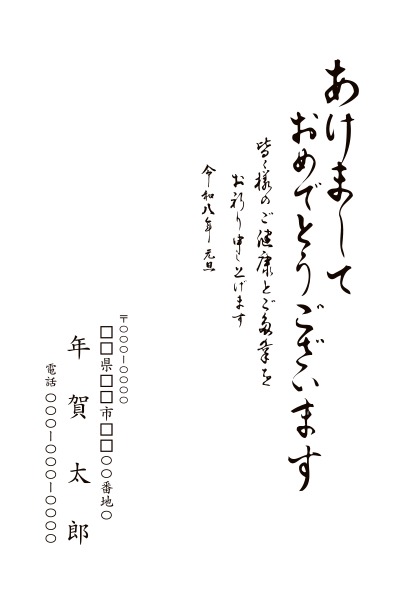 あけまして
おめでとうございます
皆々様のご健康とご多幸を
お祈り申し上げます
令和八年 元旦
〒〇〇〇-〇〇〇〇
□□県□□市□□〇〇番地〇
年賀太郎
電話 〇〇〇-〇〇〇-〇〇〇〇